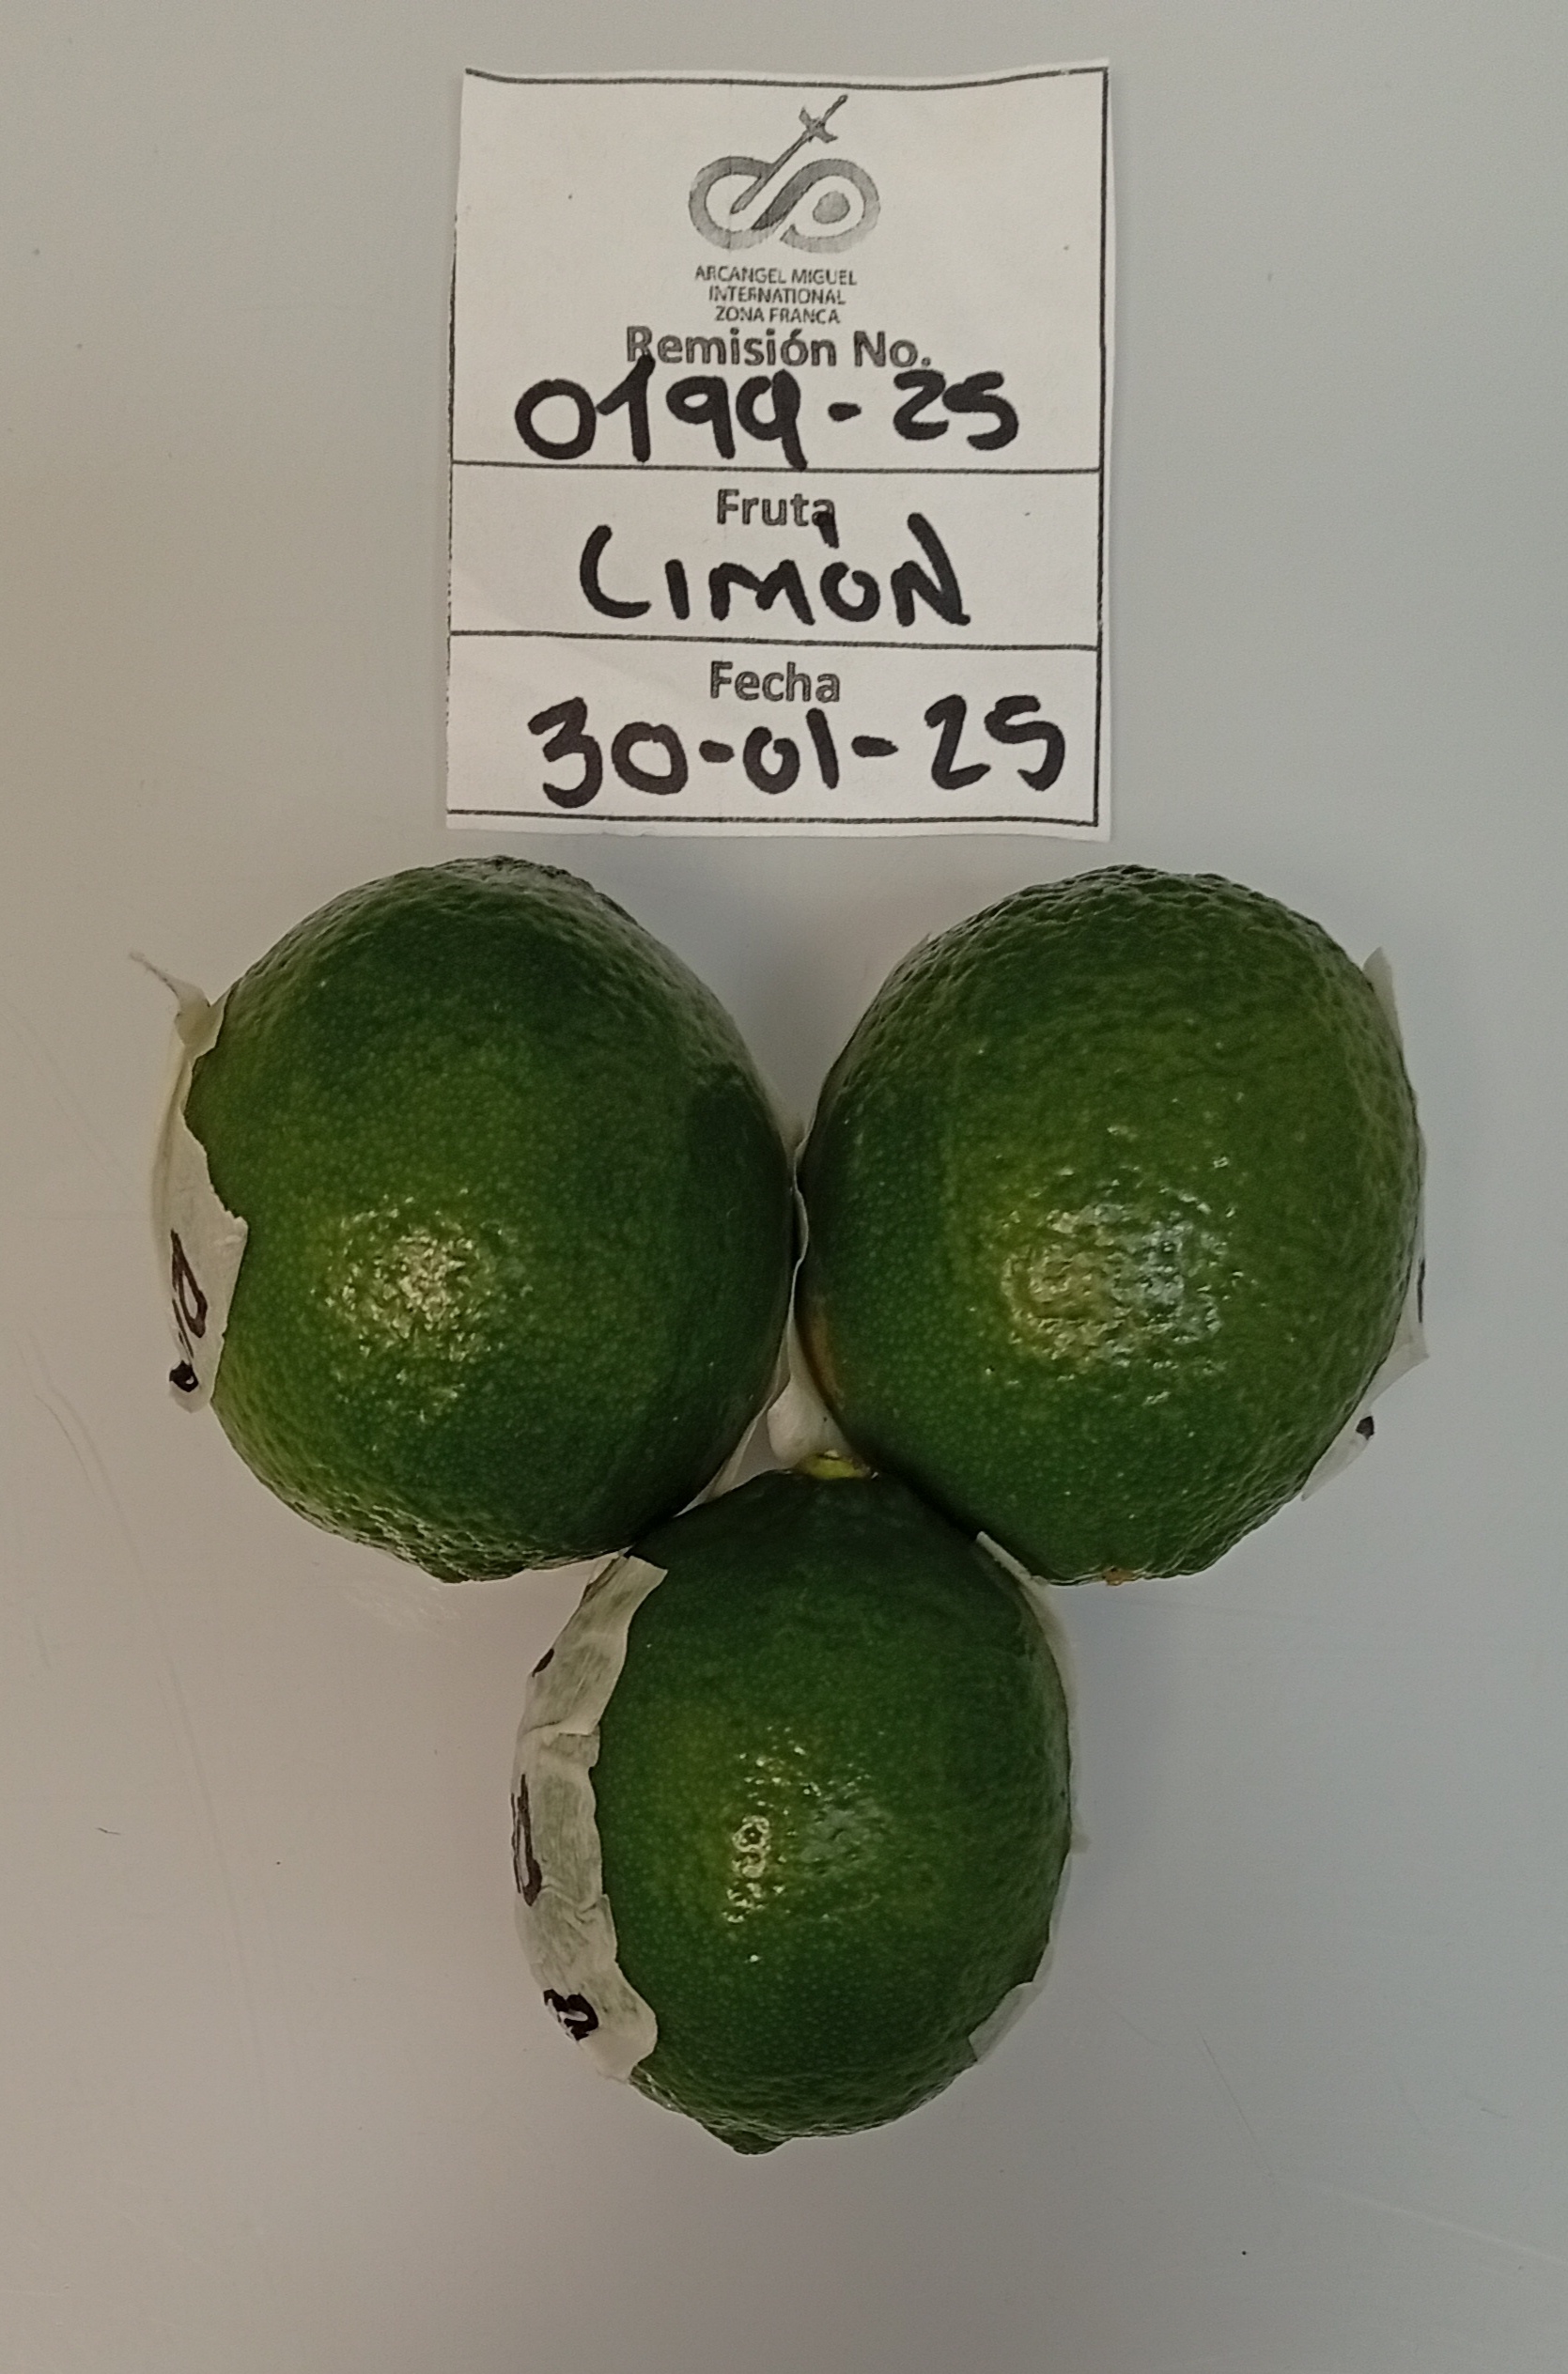 ARCANGEL MIGUEL
INTERNATIONAL
ZONA FRANCA
Remisión No.
0199-25
Fruta
LIMÓN
Fecha
30-01-25